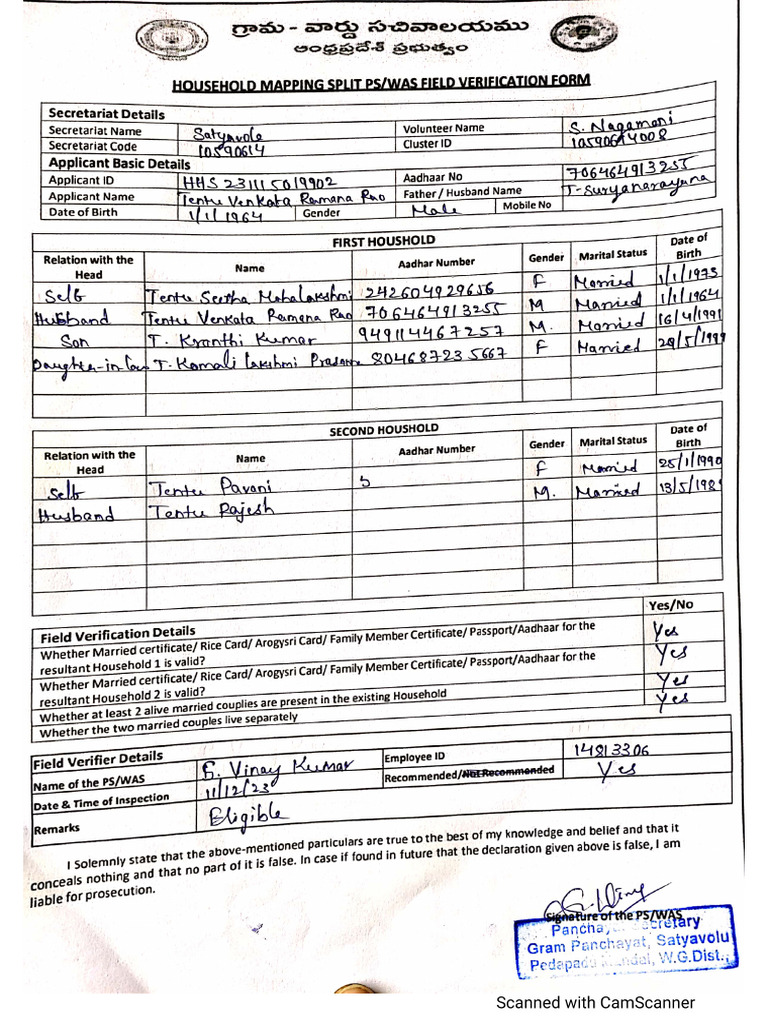 గ్రామ - వార్డు సచివాలయము
ఆంధ్రప్రదేశ్ ప్రభుత్వం
HOUSEHOLD MAPPING SPLIT PS/WAS FIELD VERIFICATION FORM
Secretariat Details
Secretariat Name Satyavole Volunteer Name S. Nagamani
Secretariat Code 10590614 Cluster ID 10590614008
Applicant Basic Details
Applicant ID HHS231115019902 Aadhaar No 706464913255
Applicant Name Tentu Venkata Ramana Rao Father / Husband Name T. Suryanarayana
Date of Birth 1/1/1964 Gender Male Mobile No
FIRST HOUSHOLD
Relation with the Head Name Aadhar Number Gender Marital Status Date of Birth
Self Tentu Seetha Mahalakshmi 242604929656 F Married 1/1/1973
Husband Tentu Venkata Ramana Rao 706464913255 M Married 1/1/1964
Son T. Kranthi Kumar 949114467257 M. Married 16/4/1991
Daughter-in-law T. Komali Lakshmi 804687235667 F Married
SECOND HOUSHOLD
Relation with the Head Name Aadhar Number Gender Marital Status Date of Birth
Self Tentu Pavani 5 F Married 25/1/1990
Husband Tentu Rajesh M. Married 13/5/1981
Yes/No
Field Verification Details
Whether Married certificate/ Rice Card/ Arogysri Card/ Family Member Certificate/ Passport/Aadhaar for the
resultant Household 1 is valid? Yes
Whether Married certificate/ Rice Card/ Arogysri Card/ Family Member Certificate/ Passport/Aadhaar for the
resultant Household 2 is valid? Yes
Whether at least 2 alive married couplies are present in the existing Household Yes
Whether the two married couples live separately Yes
Field Verifier Details
Name of the PS/WAS G. Vinay Kumar Employee ID 14813306
Date & Time of Inspection 11/12/23 Recommended/Not Recommended Yes
Remarks Eligible
I Solemnly state that the above-mentioned particulars are true to the best of my knowledge and belief and that it
conceals nothing and that no part of it is false. In case if found in future that the declaration given above is false, I am
liable for prosecution.
Signature of the PS/WAS
Panchayat Secretary
Gram Panchayat, Satyavolu
Pedapadu Mandal, W.G.Dist.,
Scanned with CamScanner